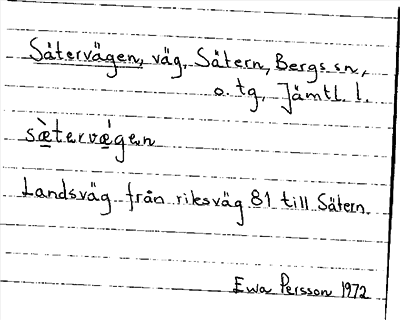 Sätervägen, väg, Sätern, Bergs sn,
o. tg, Jämtl. l.
sæ̀tervǽgen
Landsväg från riksväg 81 till Sätern.
Ewa Persson 1972